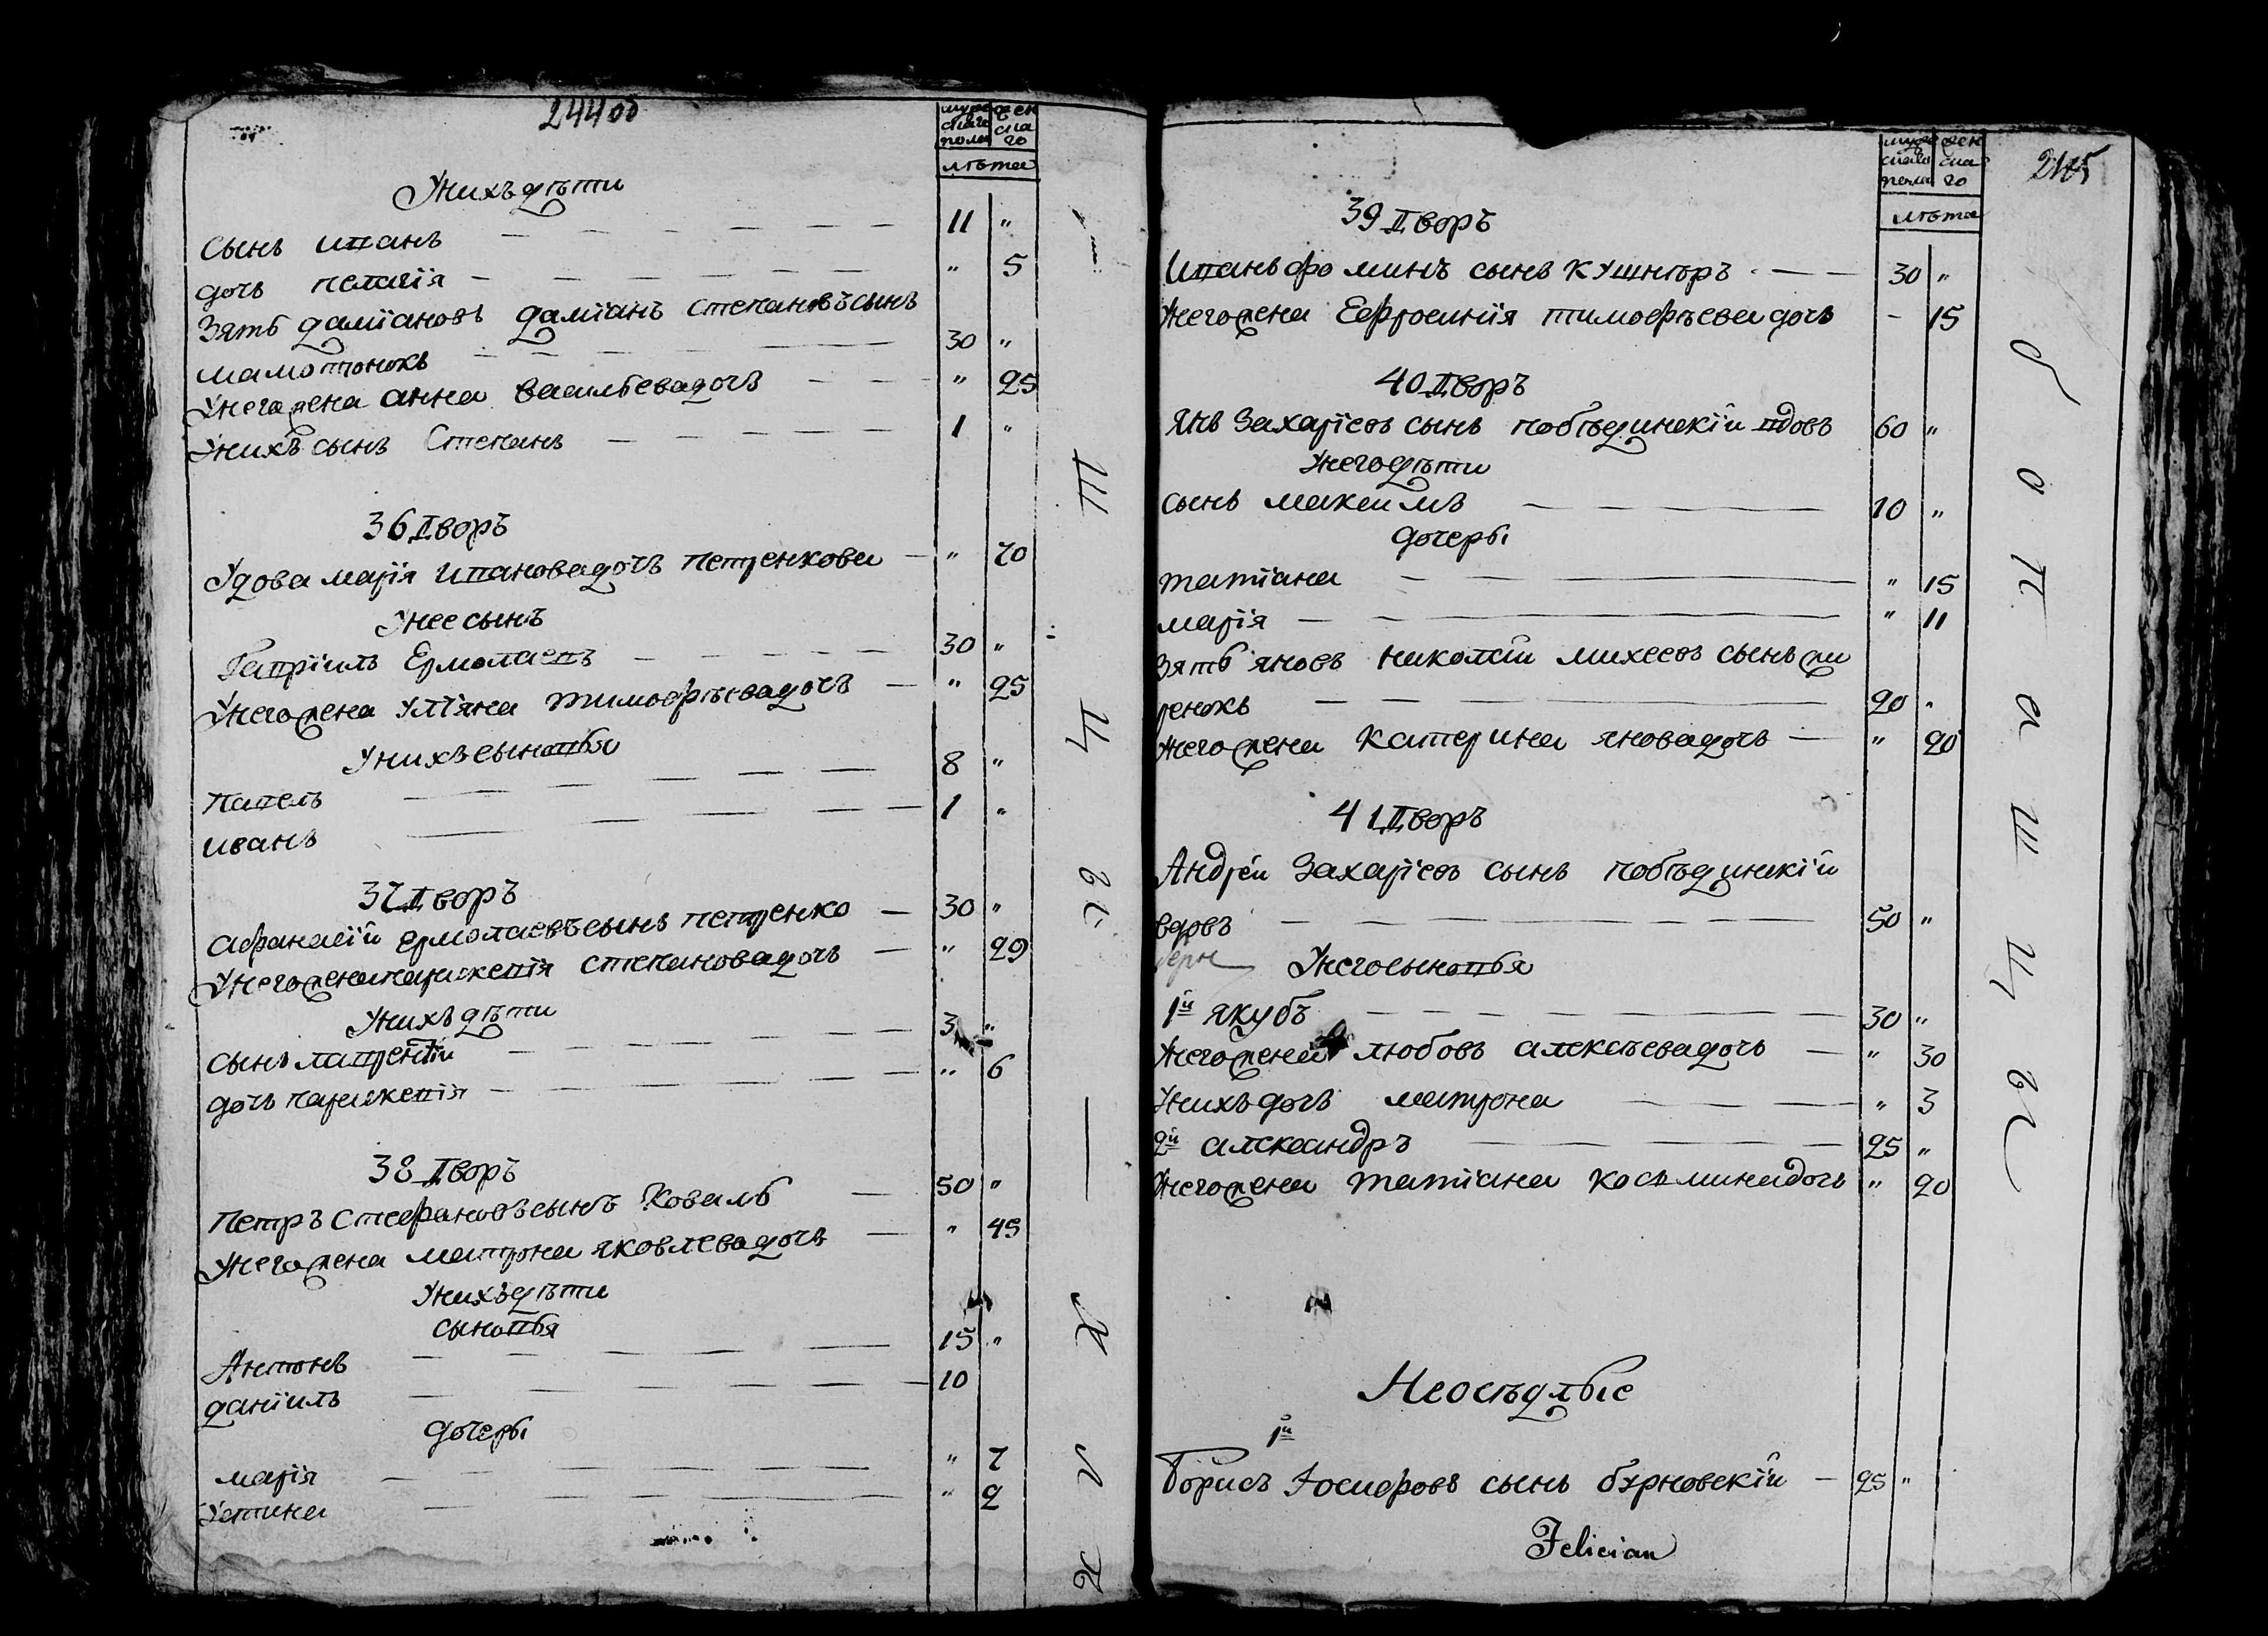 244об
муже
скаго
полу
жен
ска
го
лѣта
Унихъ дѣти
Сынъ иванъ 11 "
дочь пелагія " 5
Зять даміановъ даміанъ Степановъ сынъ
мамотюкъ 30 "
Унего жена анна васильева дочь " 25
Унихъ сынъ Степанъ 1 "
36 Дворъ
Удова марія иванова дочь петренкова " 70
Унее сынъ
Гавріилъ Ермолаевъ 30 "
Унего жена уліяна тимофѣева дочь " 25
Унихъ сыновья
Павелъ 8 "
иванъ 1 "
37 Дворъ
афанасій ермолаевъ сынъ петренко 30 "
Унего жена параскевія степанова дочь " 29
Унихъ дѣти
сынъ лаврентій 3 "
дочь параскевія " 6
38 Дворъ
Петръ Стефановъ сынъ Коваль 50 "
Унего жена матрона яковлева дочь " 45
Унихъ дѣти
сыновья
Антонъ 15 "
даніилъ 10
дочеры
марія " 7
Устина " 2
245
муже
скаго
полу
жен
ска
го
лѣта
39 Дворъ
Иванъ фоминъ сынъ Кушнѣръ 30 "
Унего жена Ефросинія тимофѣева дочь - 15
40 Дворъ
Янъ Захаріевъ сынъ побѣдинскій вдовъ 60 "
Унего дѣти
сынъ максимъ 10 "
дочеры
татіана " 15
марія " 11
Зять яновъ николай михеевъ сынъ жи
ренокъ 20 "
Унего жена Катерина янова дочь " 20
41 Дворъ
Андрей Захаріевъ сынъ побѣдинскій
вдовъ 50 "
Унего сыновья
1й якубъ 30 "
Унего жена любовь алексѣева дочь " 30
Унихъ дочь матрона " 3
2й александръ 25 "
Унего жена татіана косьмина дочь " 20
Неосѣдлые
1й
Борисъ Іосифовъ сынъ бурновскій 25 "
Felician